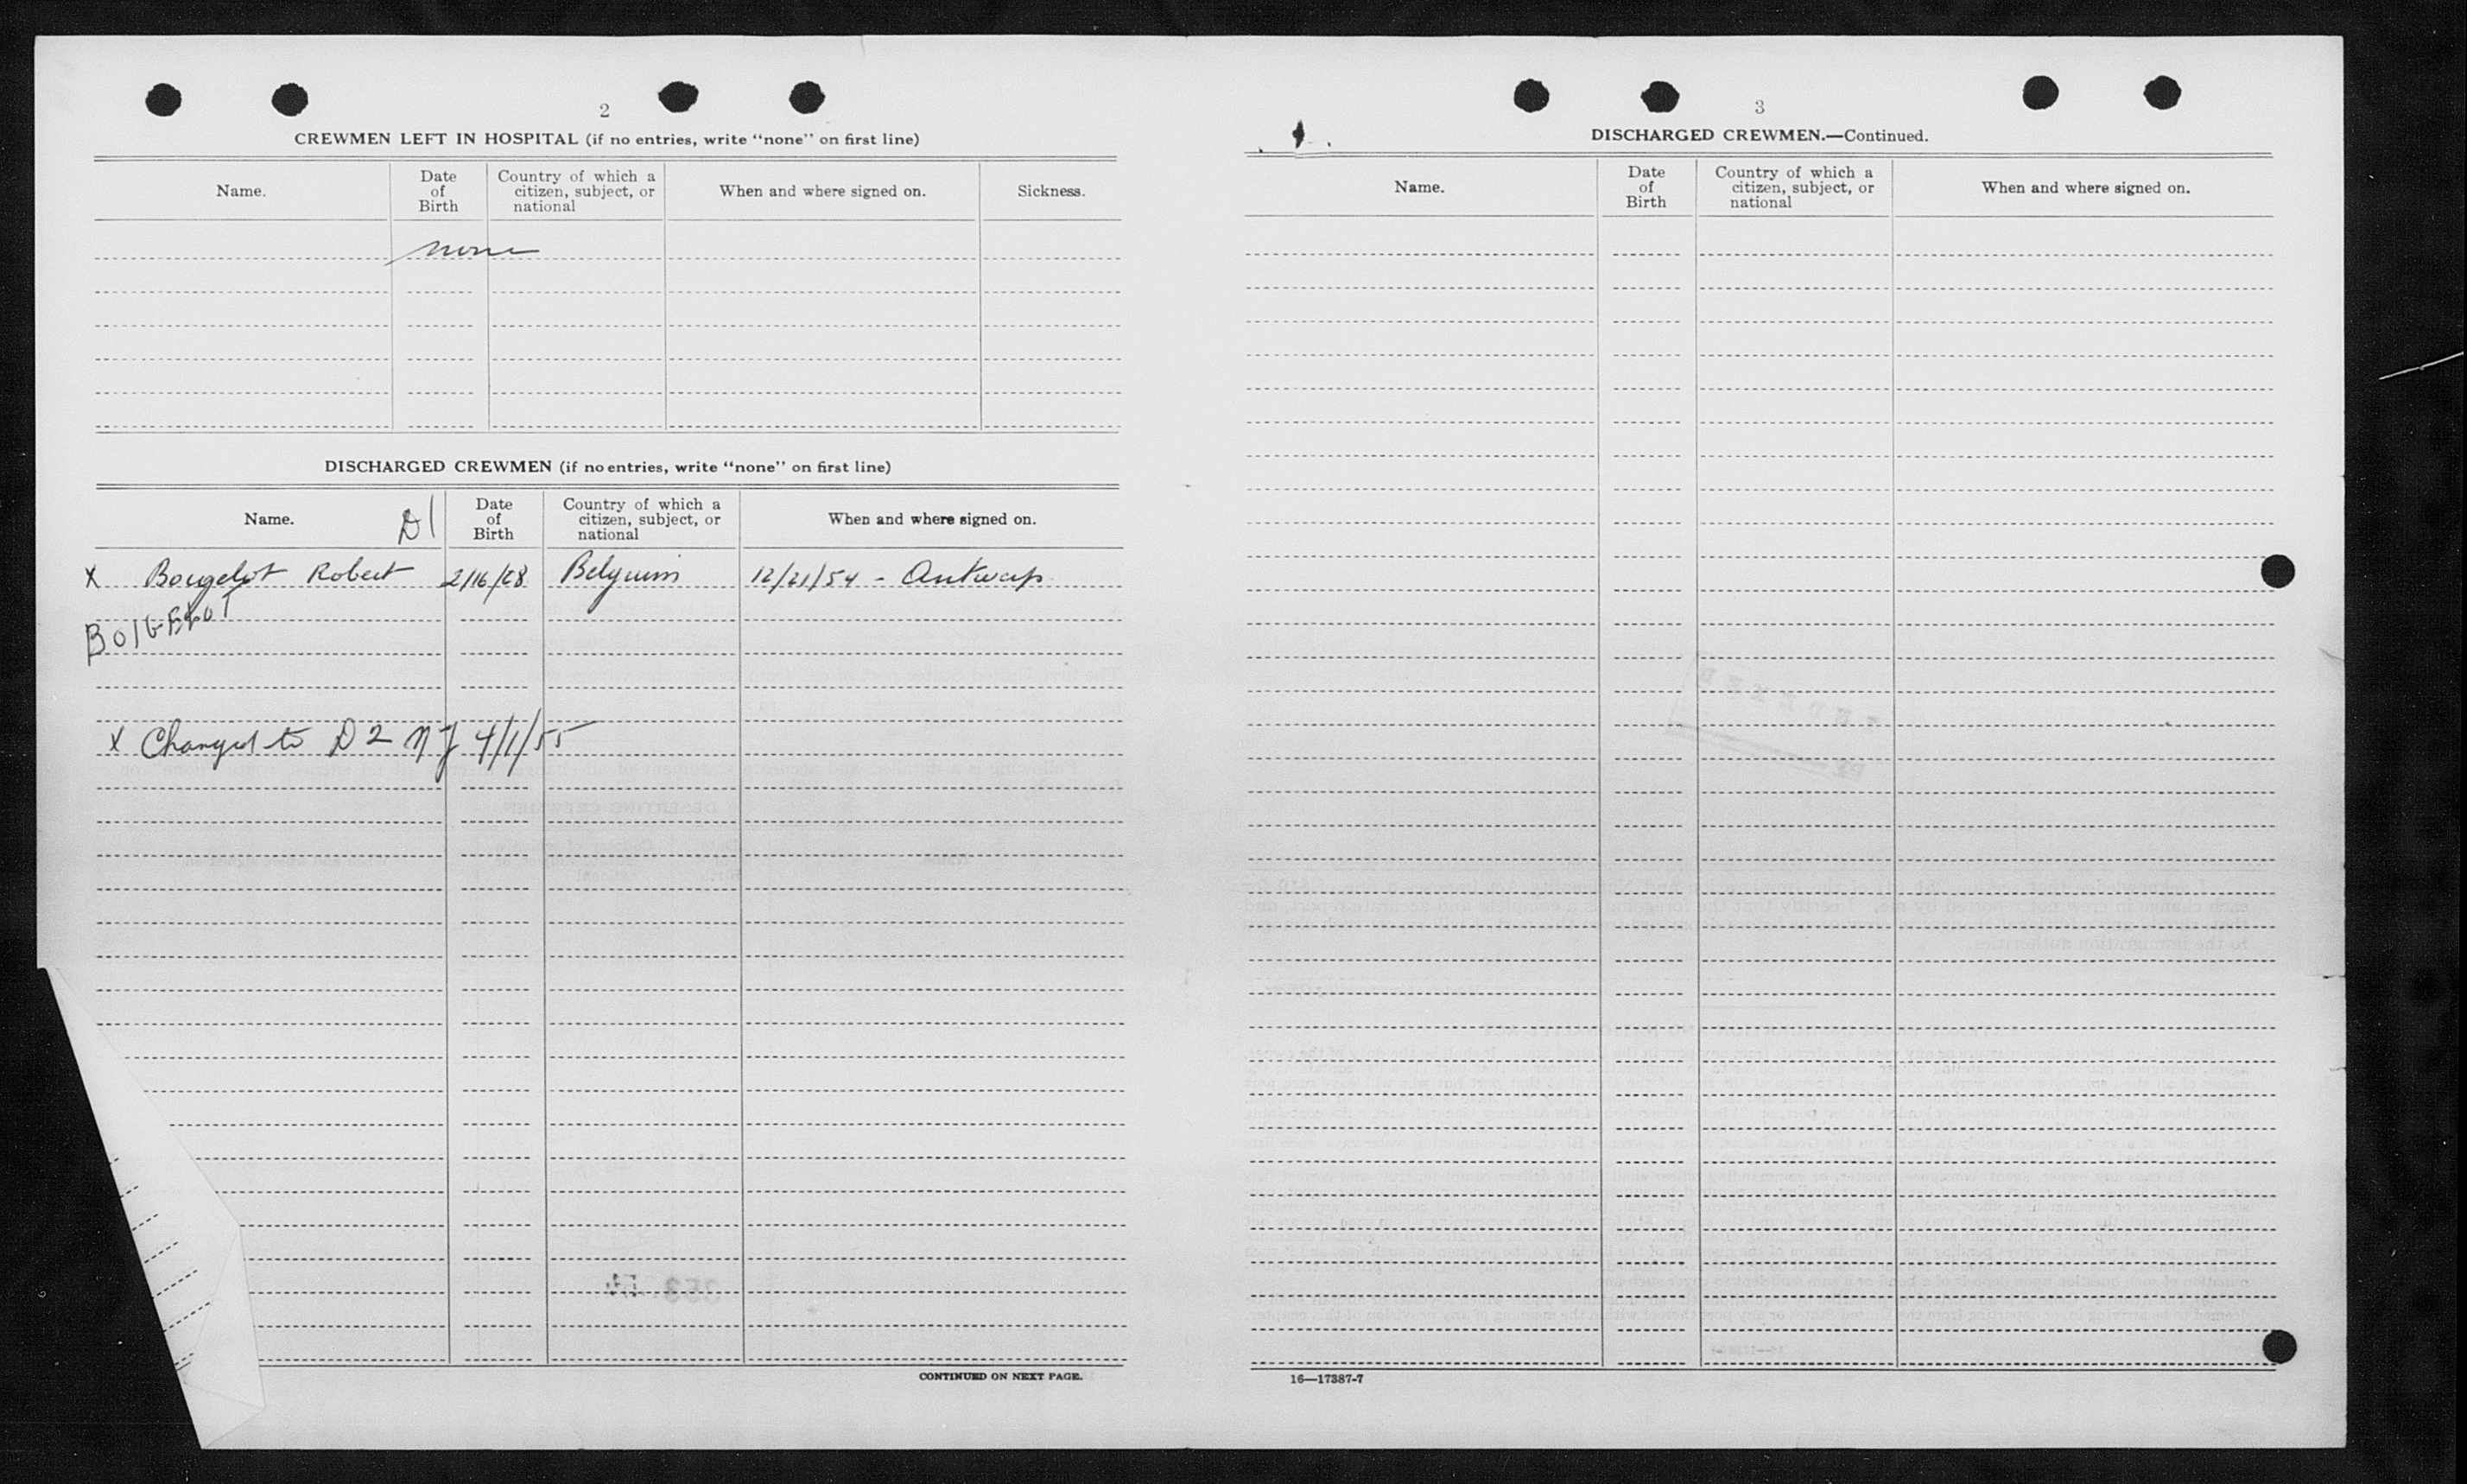 2
CREWMEN LEFT IN HOSPITAL (if no entries, write "none" on first line)
Name.
Date of Birth
Country of which a citizen, subject, or national
When and where signed on.
Sickness.
none
DISCHARGED CREWMEN (if no entries, write "none" on first line)
Name.
D1
Date of Birth
Country of which a citizen, subject, or national
When and where signed on.
X Boigelot Robert 2/16/28 Belgium 12/21/54 - Antwerp
BOIGELOT
X Changed to D2 NJ 4/1/55
CONTINUED ON NEXT PAGE.
3
DISCHARGED CREWMEN.—Continued.
Name.
Date of Birth
Country of which a citizen, subject, or national
When and where signed on.
16—17387-7